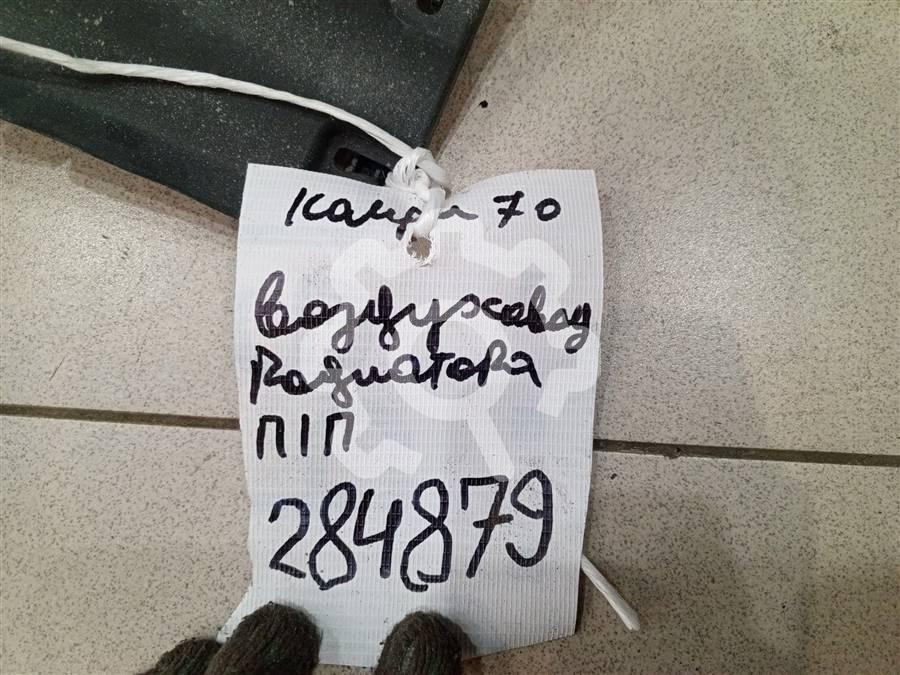 Камри 70
Воздуховод
Радиатора
П1П
284879